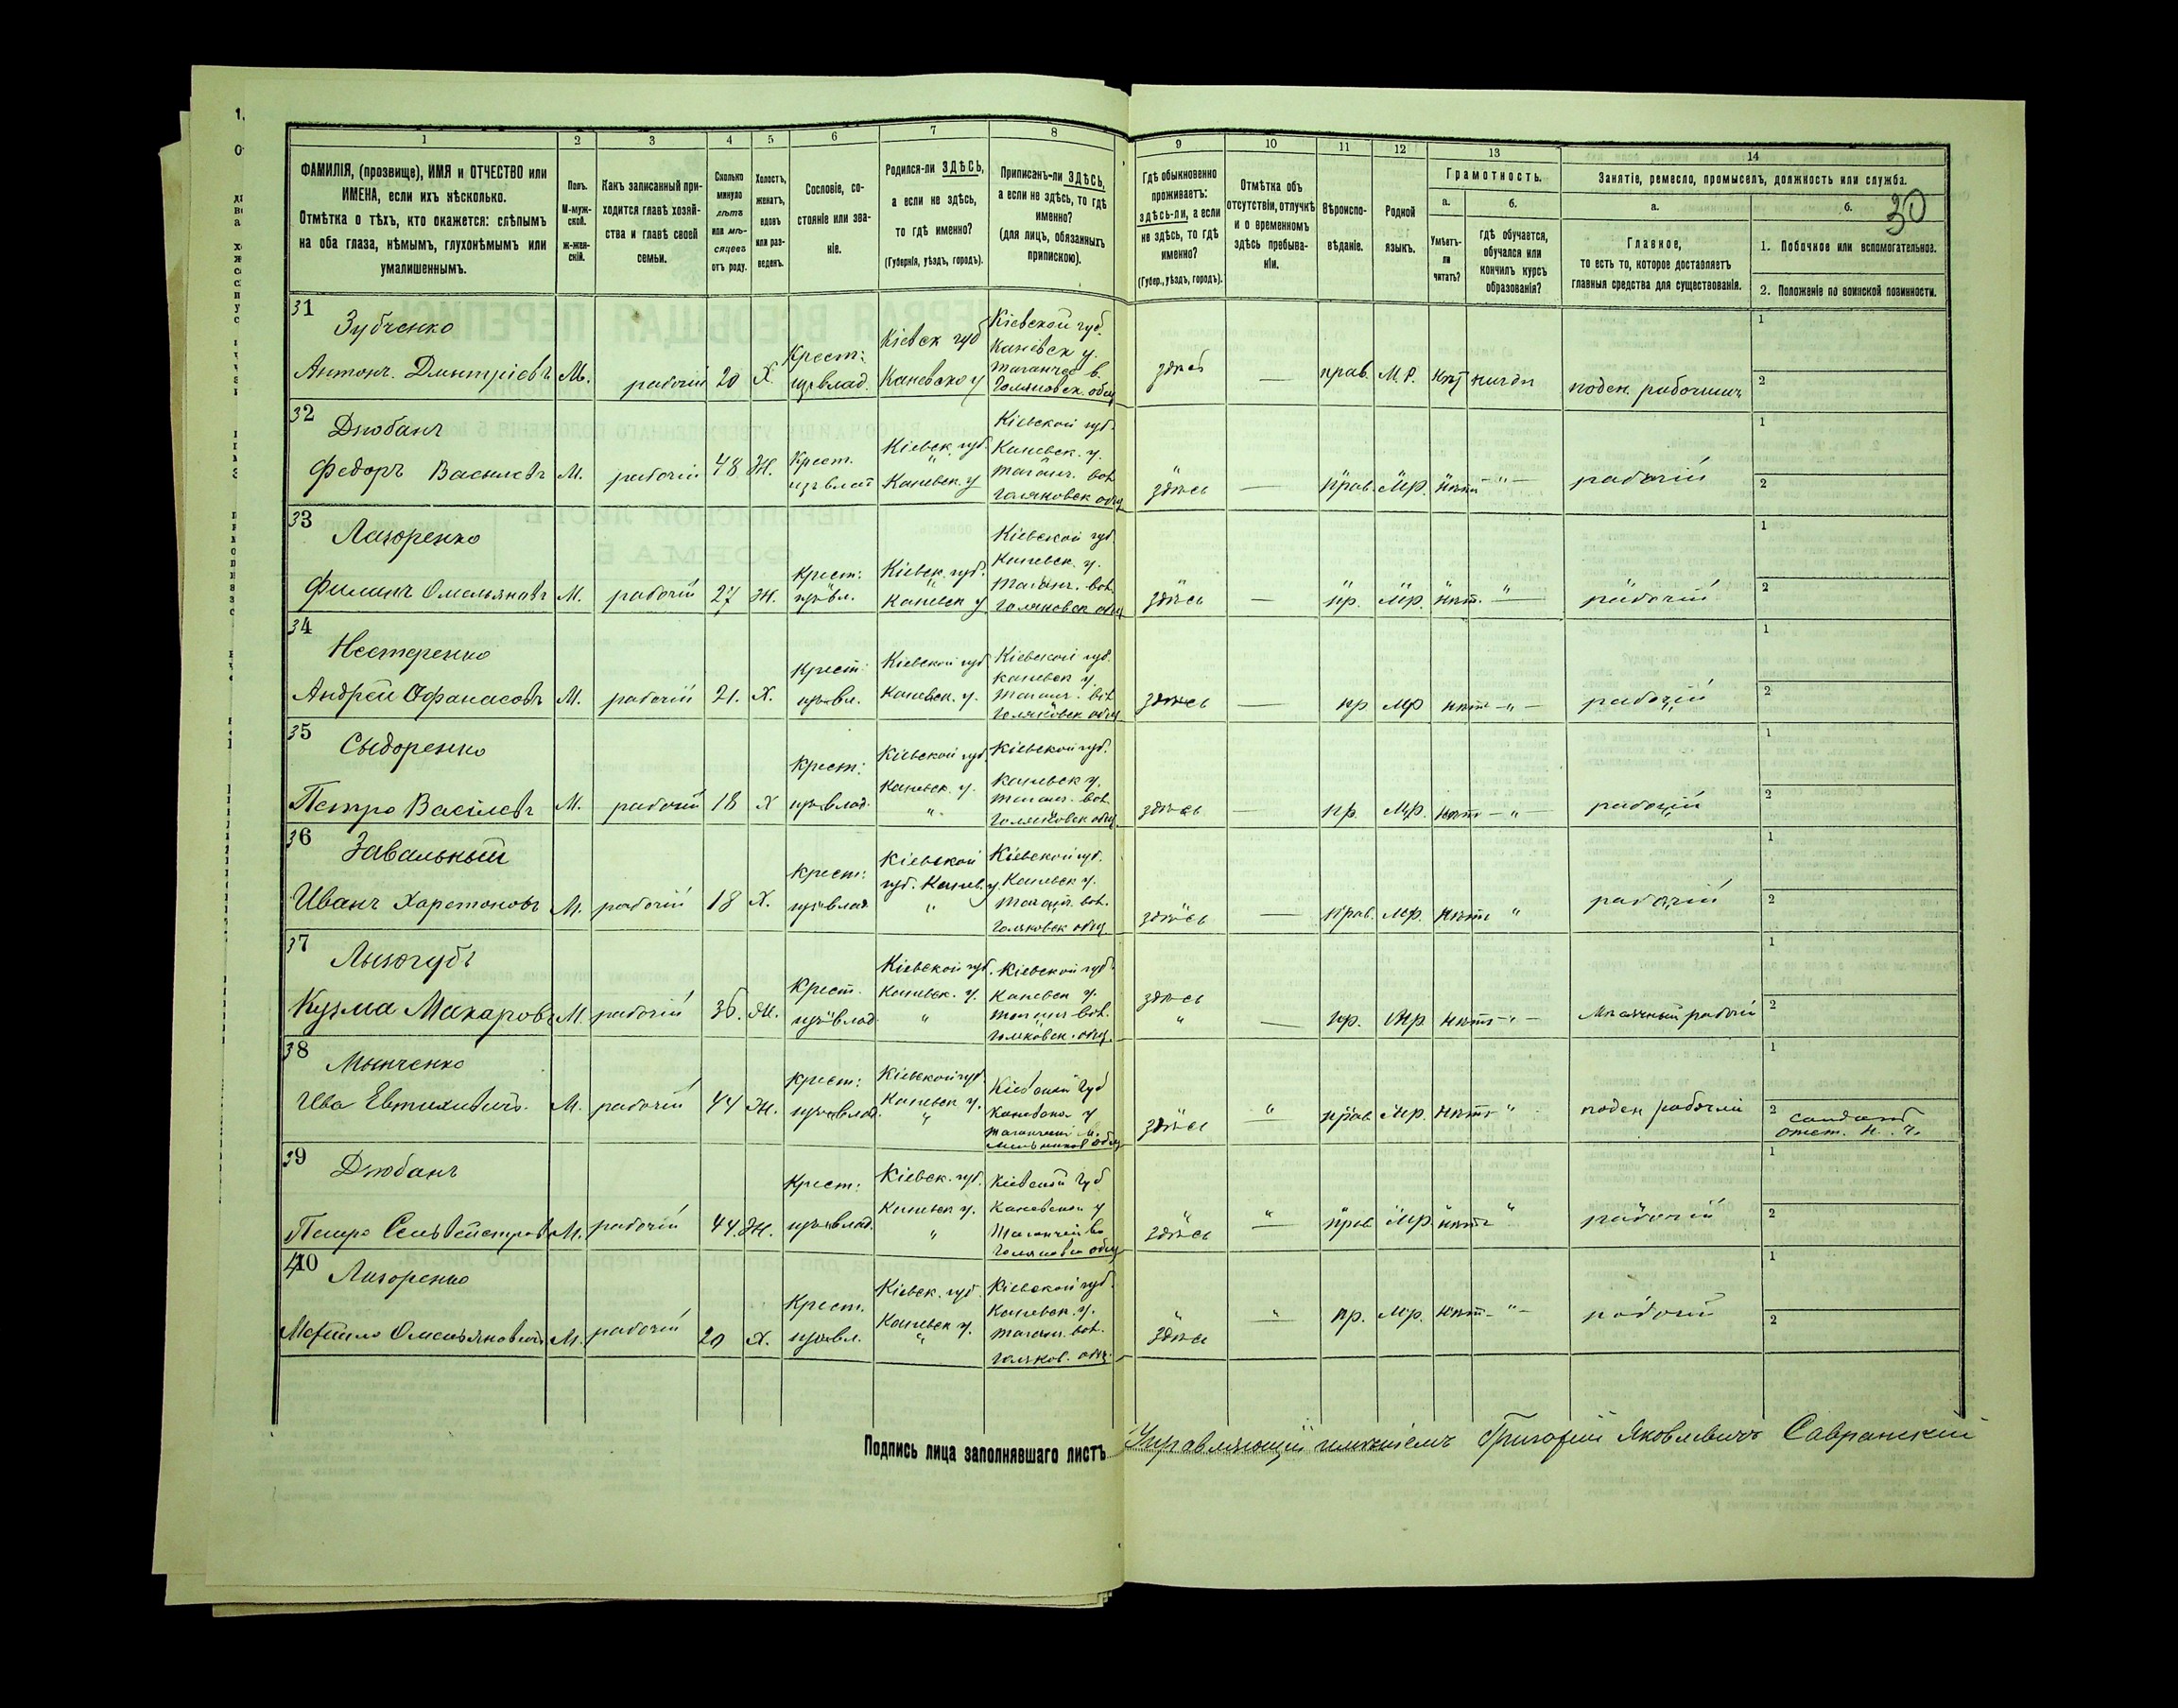 30
1 2 3 4 5 6 7 8 9 10 11 12 13 14
ФАМИЛІЯ, (прозвище), ИМЯ и ОТЧЕСТВО или
ИМЕНА, если ихъ нѣсколько.
Отмѣтка о тѣхъ, кто окажется: слѣпымъ
на оба глаза, нѣмымъ, глухонѣмымъ или
умалишеннымъ.
Полъ.
М-муж-
ской.
ж-жен-
скій.
Какъ записанный при-
ходится главѣ хозяй-
ства и главѣ своей
семьи.
Сколько
минуло
лѣтъ
или мѣ-
сяцевъ
отъ роду.
Холостъ,
женатъ,
вдовъ
или раз-
веденъ.
Сословіе, со-
стояніе или зва-
ніе.
Родился-ли ЗДѢСЬ,
а если не здѣсь,
то гдѣ именно?
(Губернія, уѣздъ, городъ).
Приписанъ-ли ЗДѢСЬ,
а если не здѣсь, то гдѣ
именно?
(для лицъ, обязанныхъ
припискою).
Гдѣ обыкновенно
проживаетъ:
здѣсь-ли, а если
не здѣсь, то гдѣ
именно?
(Губер., уѣздъ, городъ).
Отмѣтка объ
отсутствіи, отлучкѣ
и о временномъ
здѣсь пребыва-
ніи.
Вѣроиспо-
вѣданіе.
Родной
языкъ.
Грамотность.
а.
Умѣетъ-
ли
читать?
б.
гдѣ обучается,
обучался или
кончилъ курсъ
образованія?
Занятіе, ремесло, промыселъ, должность или служба.
а.
Главное,
то есть то, которое доставляетъ
главныя средства для существованія.
б.
1. Побочное или вспомогательное.
2. Положеніе по воинской повинности.
31
Зубченко
Антонъ Дмитріевъ М. рабочій 20 Х. Крест: изъ влад. Кіевск губ Каневско у
Кіевской губ. Каневск у. Голяковск. общ
прав. М. Р. нѣт поден. рабочимъ
1
2
32
Дзюбанъ
Федоръ Василевъ М. рабочій 48 Ж. Крест. Кіевск. губ. Каневск. у
Кіевской губ. Каневск. у. Таганч. вол. Голяковск общ
здѣсь — прав. Мр. нѣтъ — " — рабочій
1
2
33
Лазоренко
Филипъ Омельяновъ М. рабочій 27 Ж. Крест: изъ вл. Кіевск. губ. Каневск у
Кіевской губ. Каневск. у. Таганч. вол. Голяковск общ
здѣсь — пр. Мр. нѣт. " — рабочій
1
2
34
Нестеренко
Андрей Афанасовъ М. рабочій 21. Х. Крест. изъ вл. Кіевской губ Каневск. у.
Кіевской губ. Каневск у. Таганч. вол. Голяковск общ
здѣсь — пр Мр нѣт — " — рабочій
1
2
35
Сыдоренко
Петро Василевъ М. рабочій 18 Х Крест: изъ влад. Кіевской губ. Каневск. у. "
Кіевской губ. Каневск у. Таганч. вол. Голяковск общ
здѣсь — пр. Мр. нѣт — " — рабочій
1
2
36
Завальный
Иванъ Харетоновъ М. рабочій 18 Х. Крест: изъ влад Кіевской губ. Канев. у. "
Кіевской губ. Каневск у. Таганч. вол. Голяковск общ.
здѣсь — прав. Мр. нѣтъ " рабочій
1
2
37
Лызогубъ
Кузма Макаровъ М. рабочій 36. Ж. Крест. изъ влад. Кіевской губ. Каневск. у. "
Кіевской губ. Каневск у. Таганч вол. Голяковск. общ.
здѣсь " — пр. Мр нѣтъ " — рабочій
1
2
38
Мынченко
Ива Евтихиевичъ. М. рабочій 44 Ж. Крест: изъ влад. Кіевской губ. Каневск у. "
Кіевской губ
здѣсь " — прав Мр. нѣтъ " поден рабочій
1
2 солдатъ
39
Дзюбанъ
Петро М. рабочій 44. Ж. Крест: изъ влад. Кіевск. губ. Каневск у. "
Кіевской губ Каневской у Таганчей во Голяковск общ
здѣсь " — прав Мр нѣтъ " рабочій
1
2
40
Лазоренко
Омельяновичъ М. рабочій 20 Х. Крест. изъ вл. Кіевск. губ. Каневск у. "
Кіевской губ. Каневск. у. Таганч. вол. Голяков. общ.
здѣсь " — пр. Мр. нѣт. " — рабочій
1
2
Подпись лица заполнявшаго листъ Управляющій имѣніемъ Григорій Яковлевичъ Савранскій